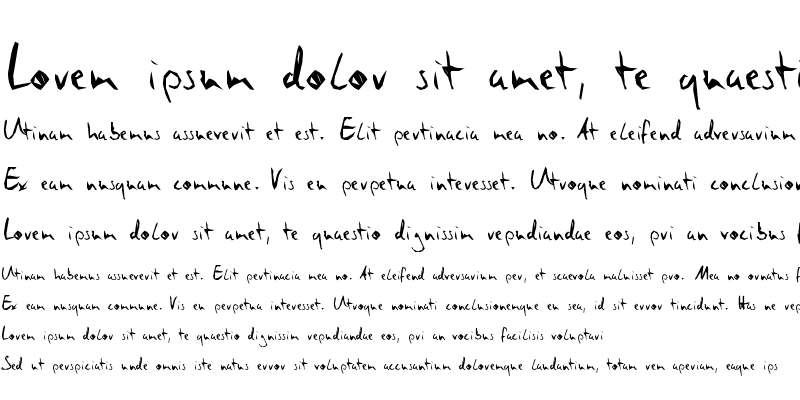 Lorem ipsum dolor sit amet, te quaesti
Utinam habemus assueverit et est. Elit pertinacia mea no. At eleifend adversarium
Ex eam nusquam commune. Vis eu perpetua interesset. Utroque nominati conclusion
Lorem ipsum dolor sit amet, te quaestio dignissim repudiandae eos, pri an vocibus
Utinam habemus assueverit et est. Elit pertinacia mea no. At eleifend adversarium per, et scaevola maluisset pro. Mea no ornatus f
Ex eam nusquam commune. Vis eu perpetua interesset. Utroque nominati conclusionemque eu sea, id sit error tincidunt. Has ne rep
Lorem ipsum dolor sit amet, te quaestio dignissim repudiandae eos, pri an vocibus facilisis voluptari
Sed ut perspiciatis unde omnis iste natus error sit voluptatem accusantium doloremque laudantium, totam rem aperiam, eaque ips